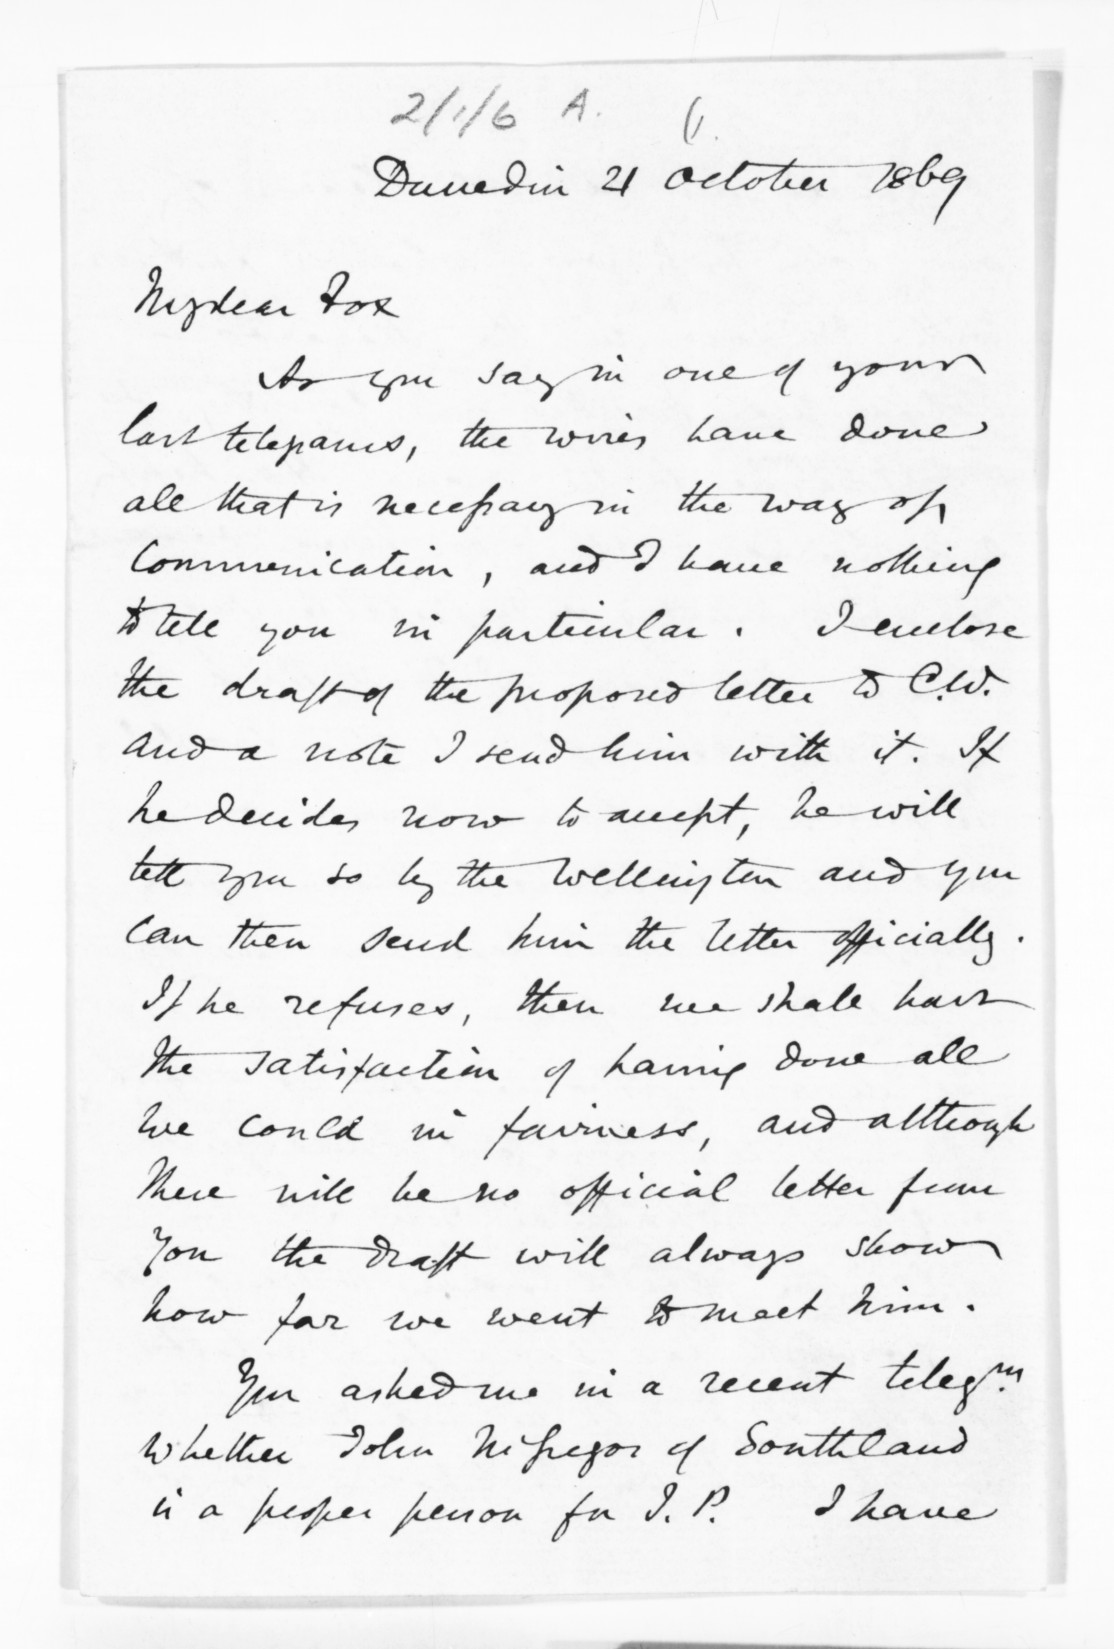 2/1/6 A.
Dunedin 21 October 1869
My dear Fox
As you say in one of your
last telegrams, the wires have done
all that is necessary in the way of
communication, and I have nothing
to tell you in particular. I enclose
the draft of the proposed letter to C.W.
and a note I send him with it. If
he decides now to accept, he will
tell you so by the Wellington and you
can then send him the letter officially.
If he refuses, then we shall have
the satisfaction of having done all
we could in fairness, and although
there will be no official letter from
you the draft will always show
how far we went to meet him.
You asked me in a recent telegm.
whether John McGregor of Southland
is a proper person for J.P. I have